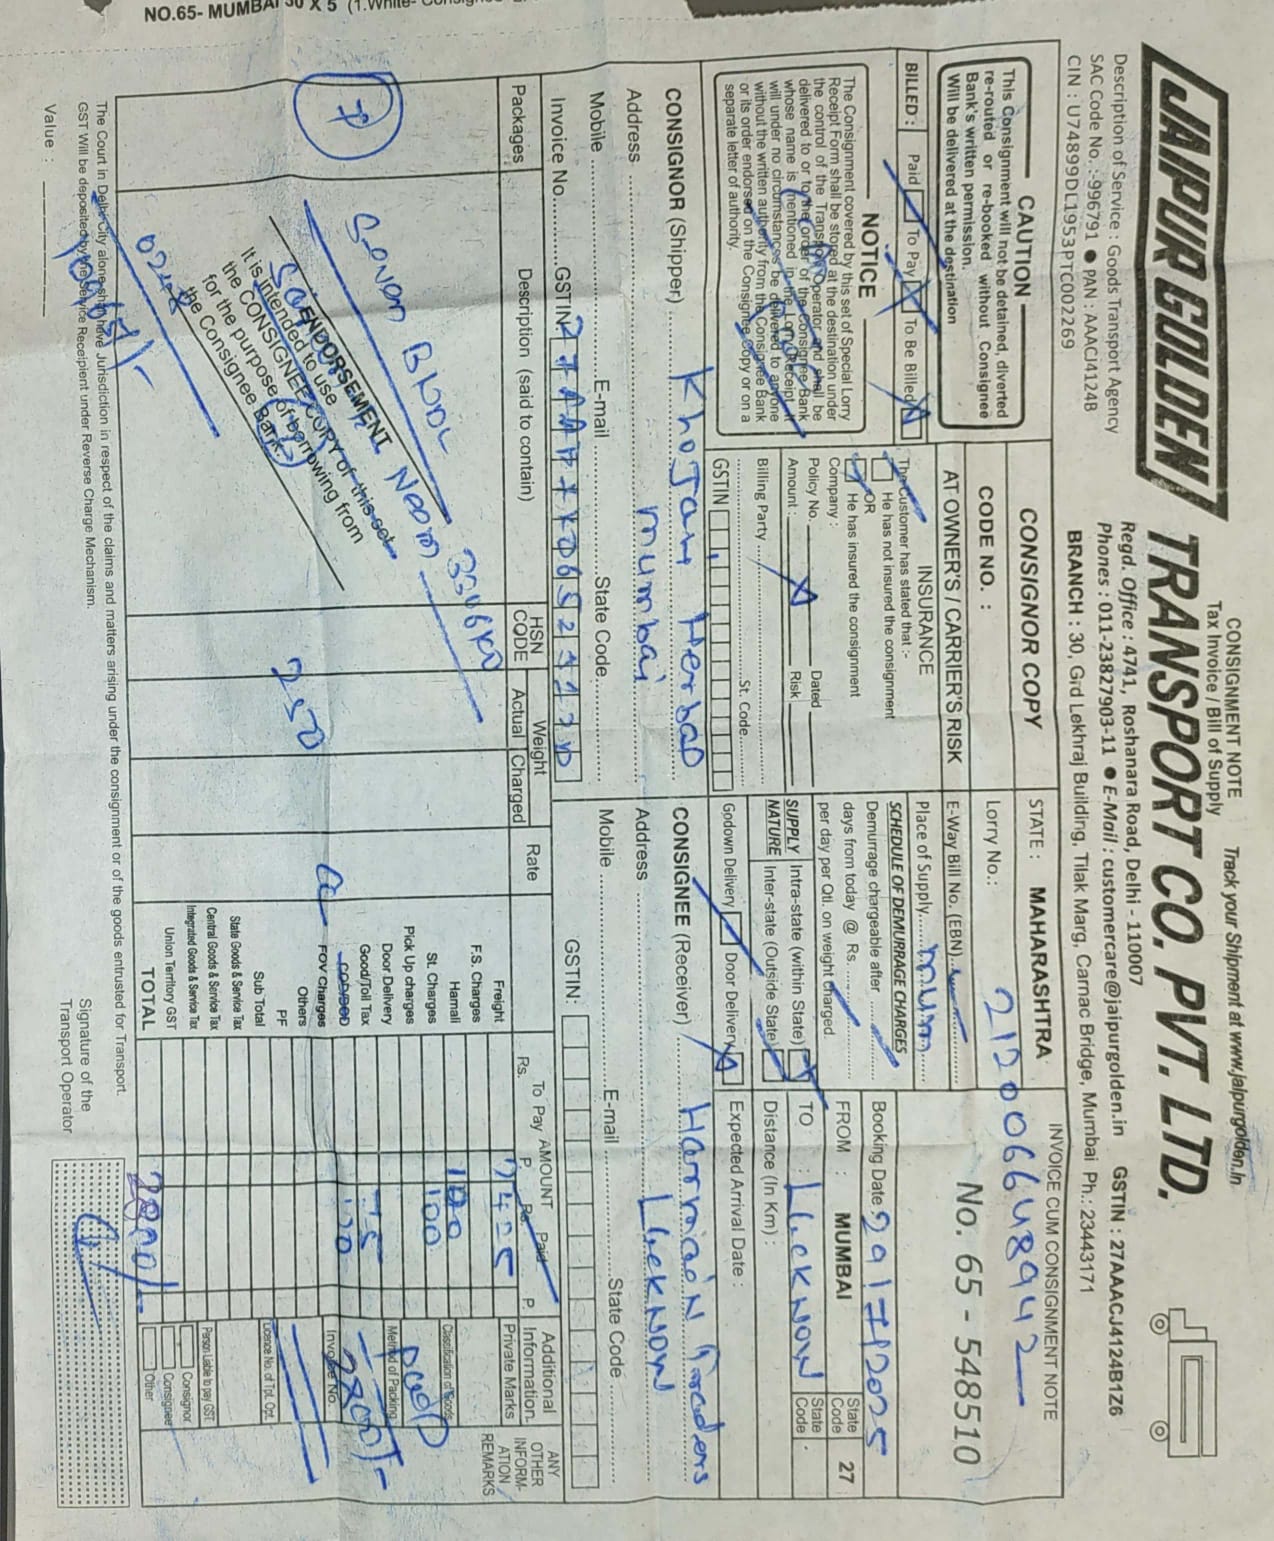 NO.65- MUMBAI 50 X 5 (1.White- Consignee
CONSIGNMENT NOTE
Tax Invoice / Bill of Supply
Track your Shipment at www.jaipurgolden.in
JAIPUR GOLDEN TRANSPORT CO. PVT. LTD.
Description of Service : Goods Transport Agency
SAC Code No. :-996791 ● PAN : AAACJ4124B
CIN : U74899DL1953PTC002269
Regd. Office : 4741, Roshanara Road, Delhi - 110007
Phones : 011-23827903-11 ● E-Mail : customercare@jaipurgolden.in
GSTIN : 27AAACJ4124B1Z6
BRANCH : 30, Grd Lekhraj Building, Tilak Marg, Carnac Bridge, Mumbai Ph.: 23443171
CAUTION
This Consignment will not be detained, diverted
re-routed or re-booked without Consignee
Bank's written permission.
Will be delivered at the destination
BILLED : Paid To Pay To Be Billed
NOTICE
The Consignment covered by this set of Special Lorry
Receipt Form shall be stored at the destination under
the control of the Transport Operator and shall be
delivered to or to the order of the Consignee Bank
whose name is mentioned in the Lorry Receipt. It
will under no circumstances be delivered to anyone
without the written authority from the Consignee Bank
or its order endorsed on the Consignee Copy or on a
separate letter of authority.
CONSIGNOR COPY
CODE NO. :
AT OWNER'S / CARRIER'S RISK
INSURANCE
The Customer has stated that :-
He has not insured the consignment
OR
He has insured the consignment
Company :
Policy No. Dated
Amount : Risk
Billing Party
St. Code
GSTIN
STATE : MAHARASHTRA
Lorry No.: 212006648942
E-Way Bill No. (EBN)
Place of Supply mum
SCHEDULE OF DEMURRAGE CHARGES
Demurrage chargeable after
days from today @ Rs.
per day per Qtl. on weight charged.
SUPPLY NATURE
Intra-state (within State)
Inter-state (Outside State)
Godown Delivery Door Delivery
INVOICE CUM CONSIGNMENT NOTE
No. 65 - 548510
Booking Date: 29/7/2025
FROM : MUMBAI State Code 27
TO : Lucknow State Code
Distance (In Km) :
Expected Arrival Date :
CONSIGNOR (Shipper) Khojati Herbal
Address mumbai
Mobile E-mail State Code
Invoice No. GSTIN
CONSIGNEE (Receiver) Harmain Traders
Address Lucknow
Mobile E-mail State Code
GSTIN:
Packages Description (said to contain) HSN CODE Weight Actual Charged Rate
AMOUNT
To Pay Rs. P. Paid Rs. P.
Additional Information
Private Marks
ANY OTHER INFORMATION REMARKS
7
Seven BNDL
Neem
ENDORSEMENT
It is intended to use
the CONSIGNEE COPY of this set
for the purpose of borrowing from
the Consignee Bank.
250
Freight 2425
F.S. Charges
Hamali 100
St. Charges 100
Pick Up charges
Door Delivery
Good/Toll Tax 75
COD/DOD 100
FOV Charges
Others
PF
Sub Total
State Goods & Service Tax
Central Goods & Service Tax
Integrated Goods & Service Tax
Union Territory GST
TOTAL 2800/-
Classification of Goods
Method of Packing
Invoice No.
Licence No. of Tpt. Opt.
Person Liable to pay GST
Consignor
Consignee
Other
The Court in Delhi City alone shall have Jurisdiction in respect of the claims and matters arising under the consignment or of the goods entrusted for Transport.
GST Will be deposited by the Service Receipient under Reverse Charge Mechanism.
Value :
Signature of the
Transport Operator